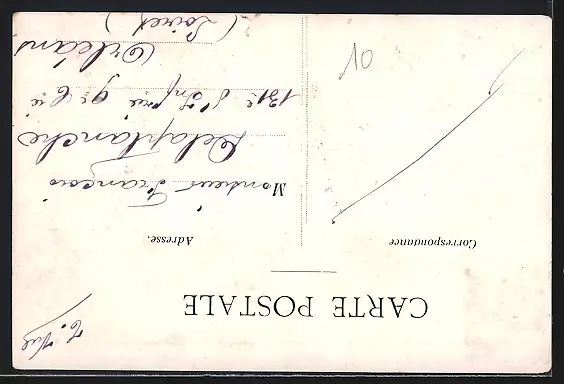 T. Vue
CARTE POSTALE
Correspondance
Adresse.
Monsieur François
Delaplanche
131e d'Infrie 9e Cie
Orléans
(Loiret)
10